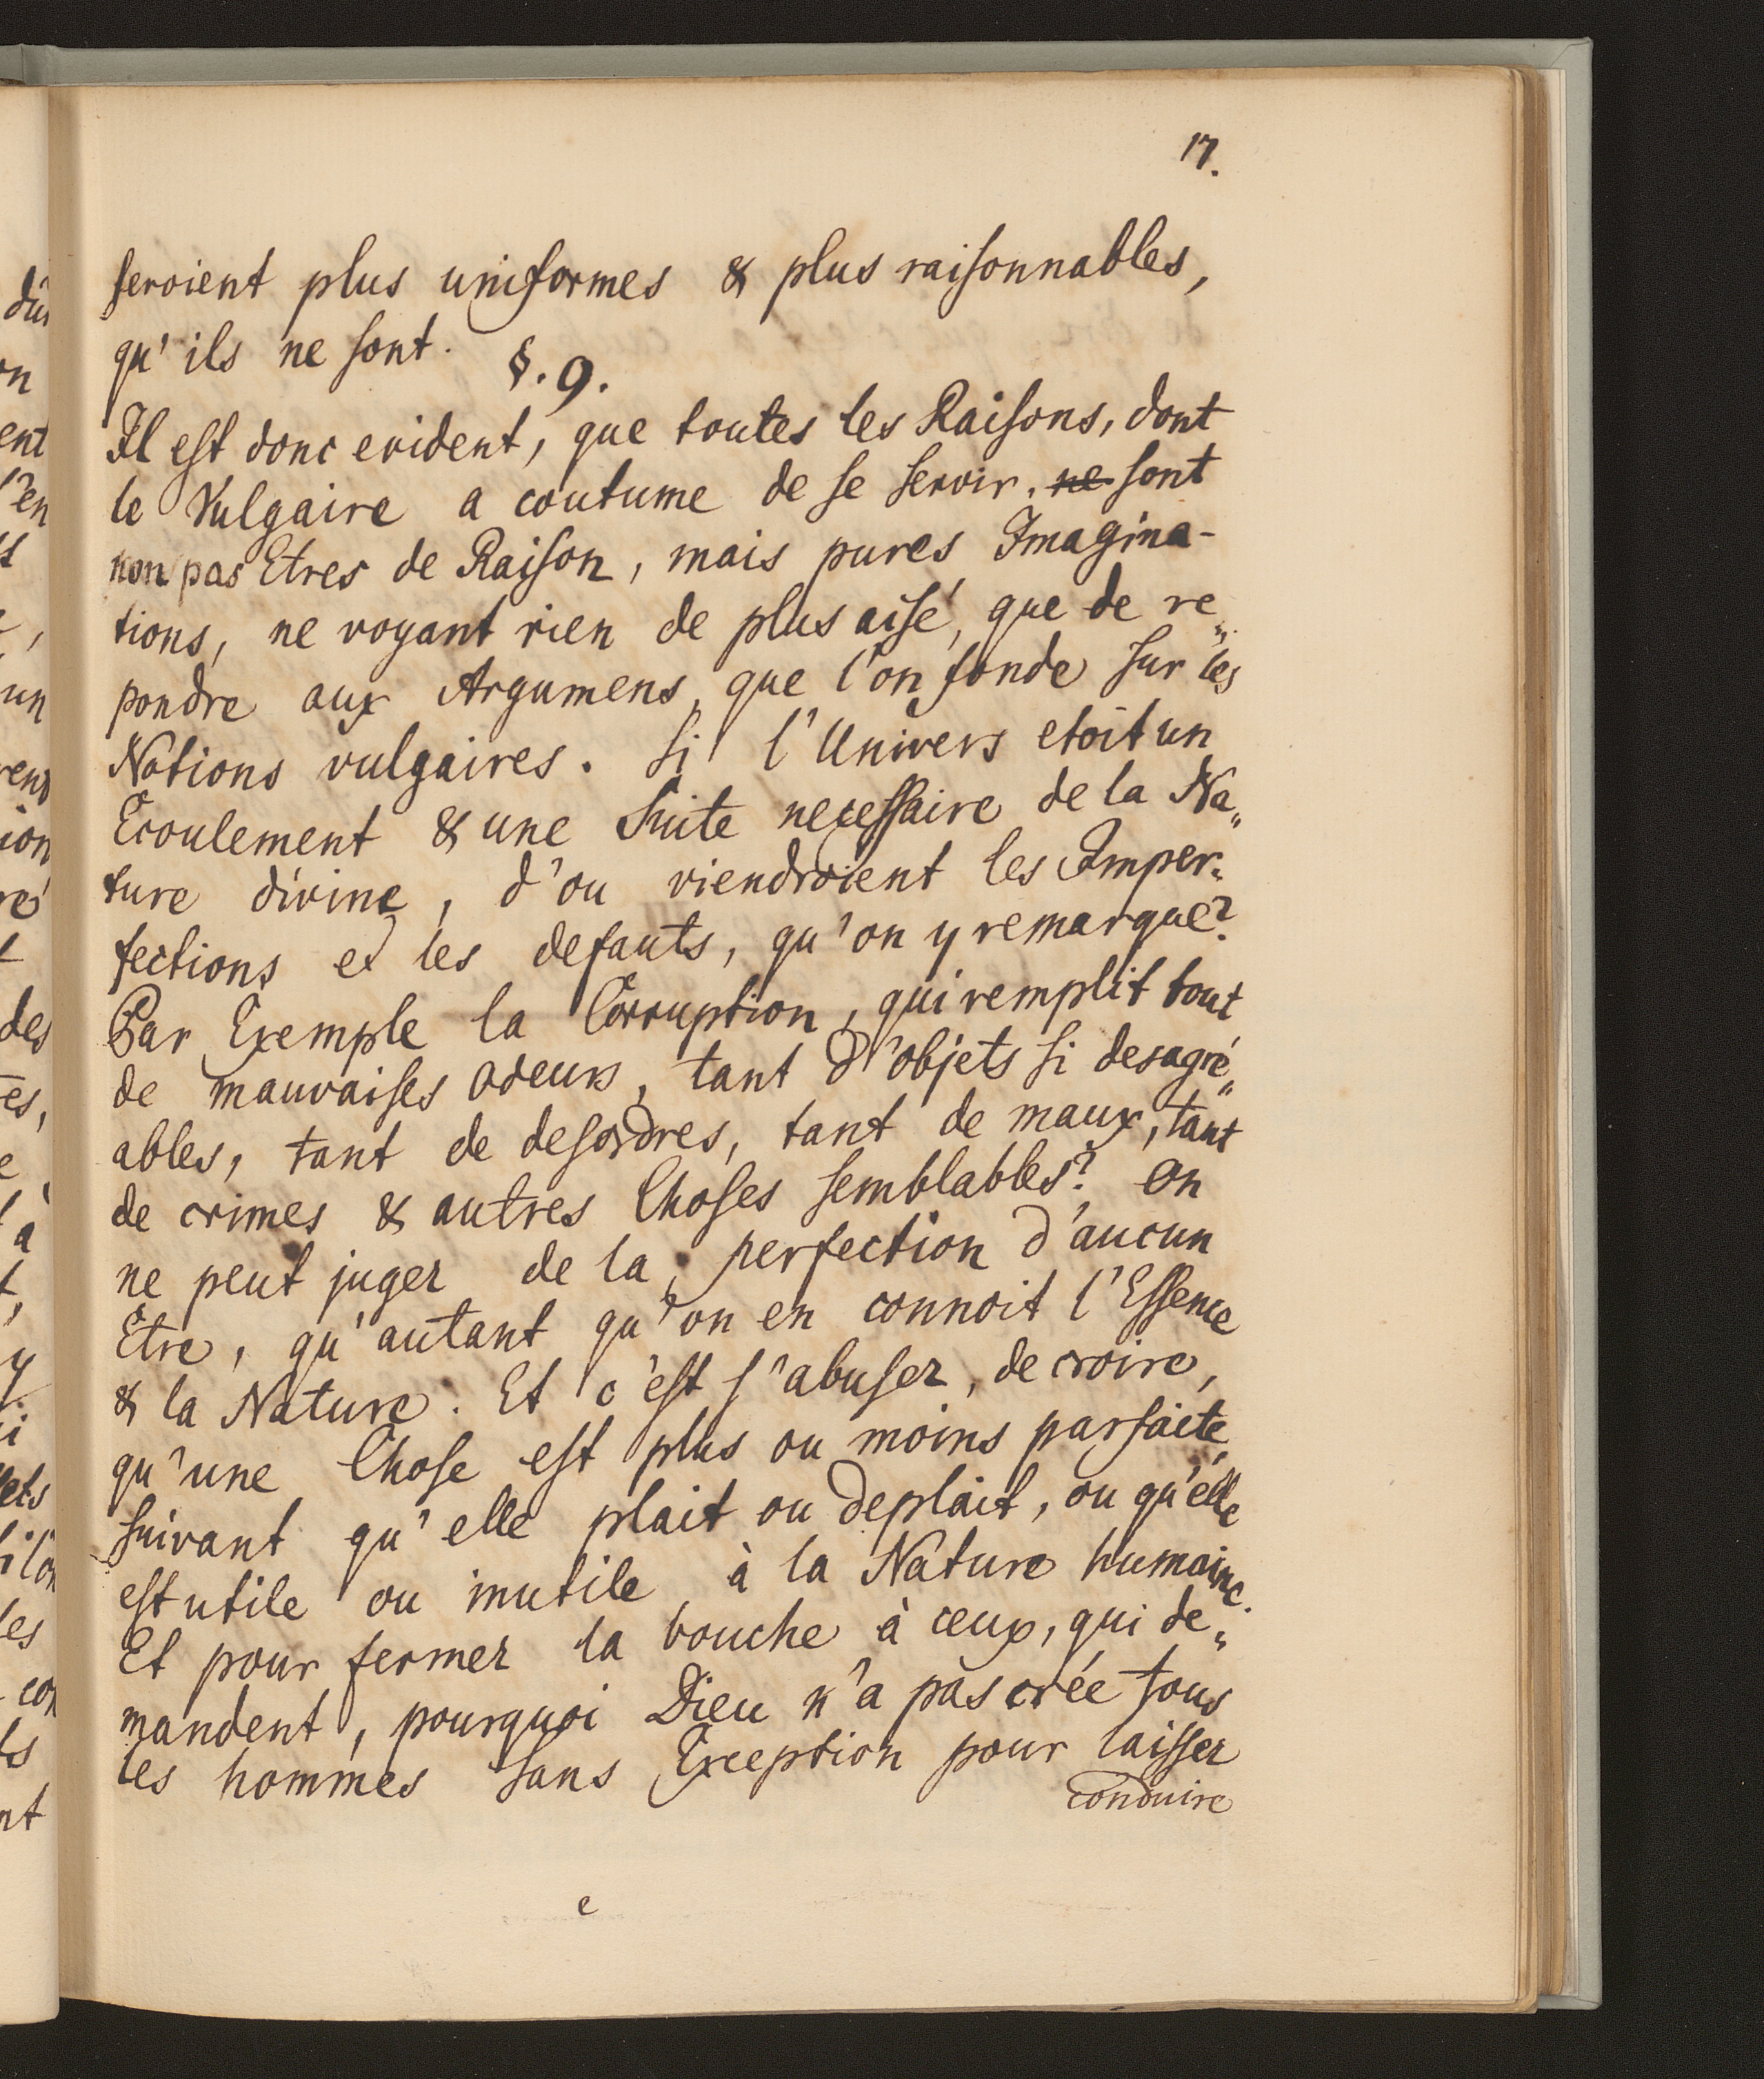 17.
seroient plus uniformes & plus raisonnables,
qu'ils ne sont.
§. 9.
Il est donc evident, que toutes les Raisons, dont
le Vulgaire a coutume de se servir, ne sont
non pas Etres de Raison, mais pures Imagina-
tions, ne voyant rien de plus aisé, que de re„
pondre aux Argumens, que l'on fonde sur les
Notions vulgaires. Si l'Univers etoit un
Ecoulement & une Suite necessaire de la Na„
ture divine, d'ou viendroient les Imper„
fections et les defauts, qu'on y remarque?
Par Exemple la Corruption, qui remplit tout
de mauvaises odeurs, tant d'objets si desagré„
ables, tant de desordres, tant de maux, tant
de crimes & autres Choses semblables? On
ne peut juger de la perfection d'aucun
Etre, qu'autant qu'on en connoit l'Essence
& la Nature. Et c'est s'abuser, de croire,
qu'une Chose est plus ou moins parfaite,
suivant qu'elle plait ou deplait, ou qu'elle
est utile ou inutile à la Nature humaine.
Et pour fermer la bouche à ceux, qui de„
mandent, pourquoi Dieu n'a pas crée tous
les hommes sans Exception pour laisser
conduire
e